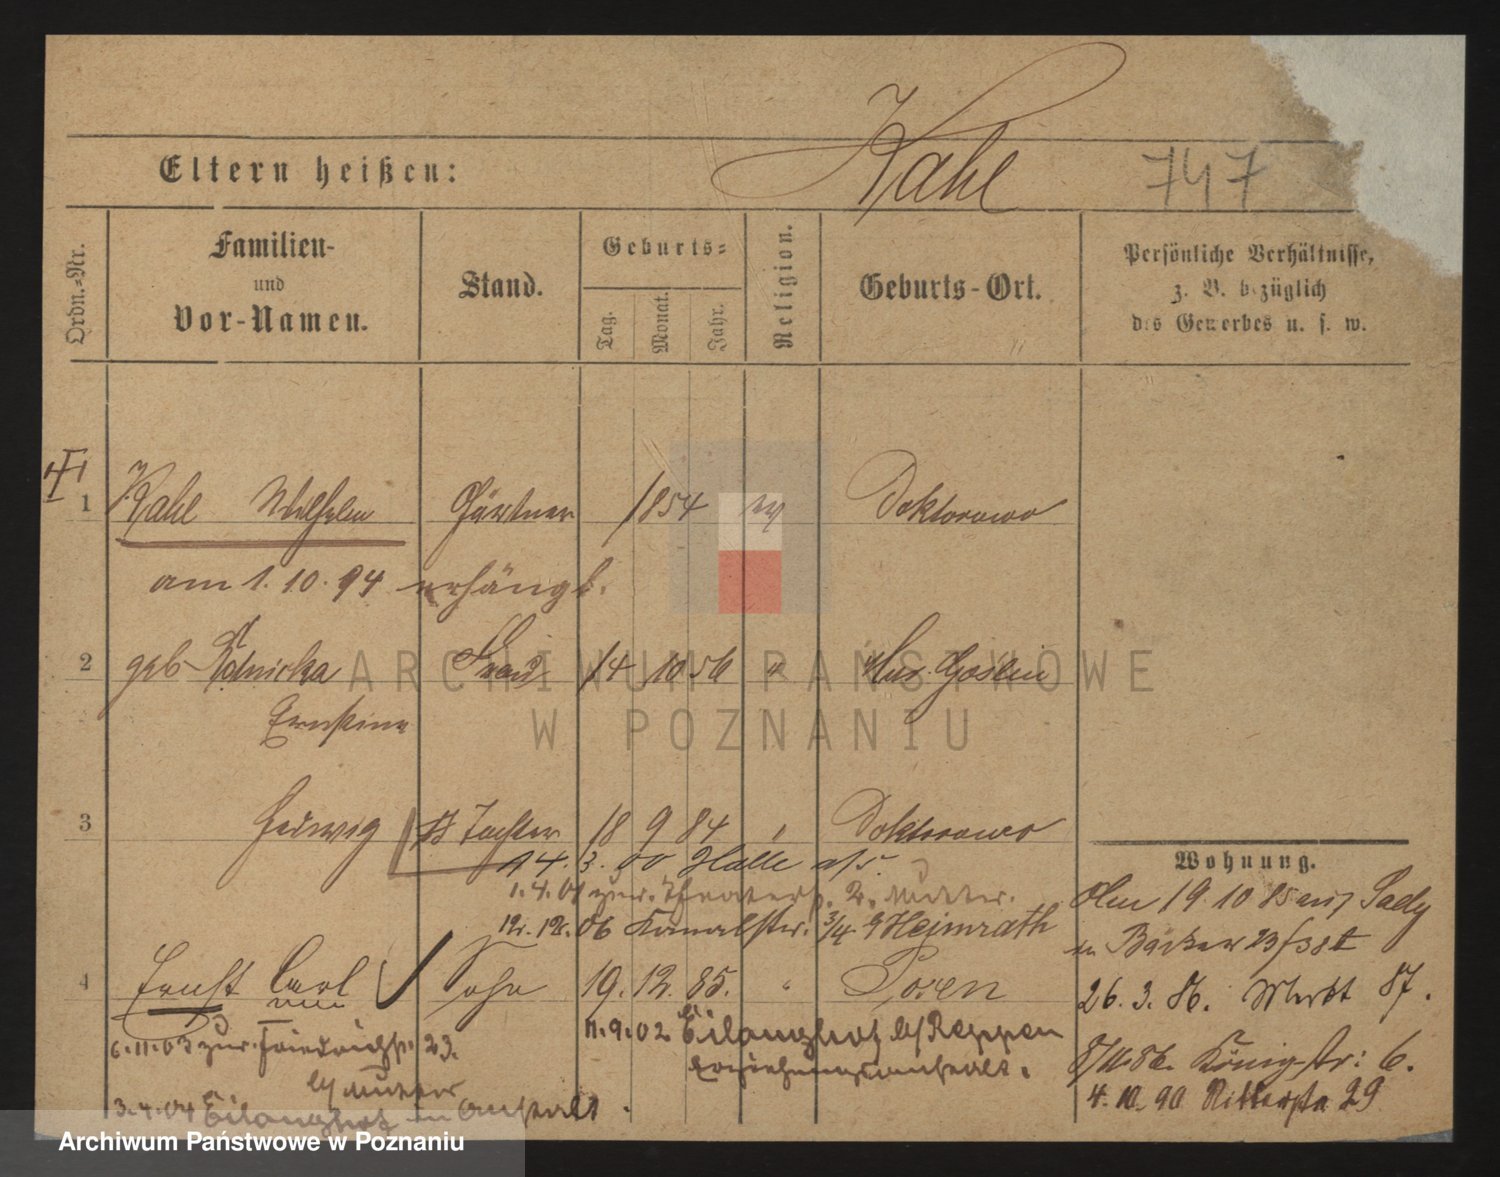 Kahl
747
Eltern heißen:
Ordn.-Nr.
Familien-
und
Vor-Namen.
Stand.
Geburts-
Tag.
Monat.
Jahr.
Religion.
Geburts-Ort.
Persönliche Verhältnisse,
z. B. bezüglich
des Gewerbes u. s. w.
1 Kahl Wilhelm Gärtner 1854 ev Doktorowo
am 1. 10. 94 erhängt.
2 geb Frau 14 10 56 " Mur. Goslin
Ernstine
ARCHIWUM PAŃSTWOWE
W POZNANIU
3 Hedwig Tochter 18 9 84 Doktorowo
14. 3. 00 Halle a/S.
1. 4. 01 zur. 2, Mutter.
12. 12. 06 Kanalstr. 3/4 b Heimrath
4 Ernst Carl Sohn 19. 12. 85. " Posen
11. 9. 02 Eilanghof b/ Reppen
Erziehungsanstalt.
6. 11. 03 zur. Friedrichstr. 23.
b/ Mutter
3. 4. 04 Eilanghof in Anstalt.
Wohnung.
19. 10 85 aus Sady
Bäcker 23
26. 3. 86. Markt 87.
86. Königstr: 6.
4. 10. 90 Ritterstr 29
Archiwum Państwowe w Poznaniu